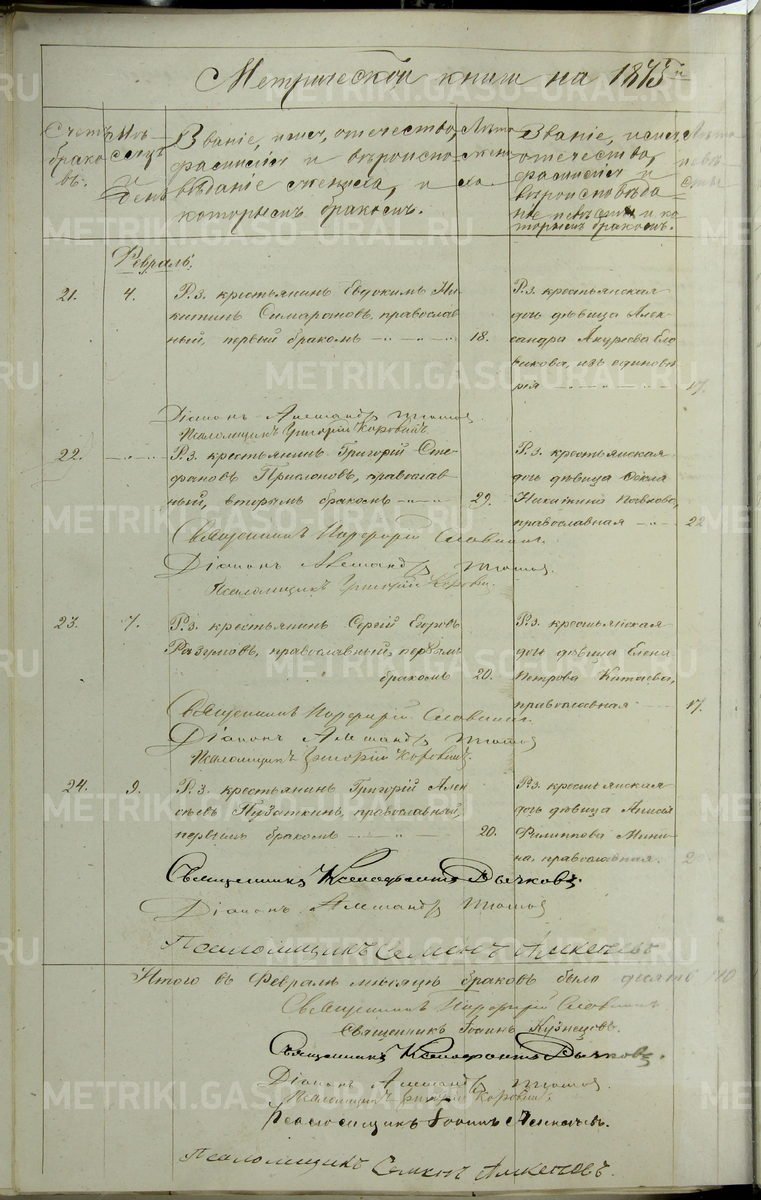 Метрической книги на 1875й
Счетъ
брако
въ.
Мѣ
сяцъ
и
день
Званіе, имя, отечество,
фамилія и вѣроиспо
вѣданіе жениха, и
которымъ бракомъ.
Лѣта
жени
ха.
Званіе, имя,
отечество,
фамилія и
вѣроисповѣда
ніе невѣсты и ко
торымъ бракомъ.
Лѣта
невѣ
сты
Февраль.
21. 4. Р.з. крестьянинъ Евдокимъ Ни
китинъ православ
ный, первый бракомъ 18.
Р.з. крестьянская
дочь дѣвица Алек
сандра
изъ единовѣ
рія 17.
Діаконъ Александръ
Псаломщикъ Григорій Коровинъ
22. Р.з. крестьянинъ Григорій Сте
фановъ православ
ный, вторымъ бракомъ 29.
Р.з. крестьянская
дочь дѣвица Фекла
православная 22
Священникъ Порфирій Славнинъ.
Діаконъ Александръ
Псаломщикъ Григорій Коровинъ.
23. 7. Р.з. крестьянинъ Сергій Егоровъ
Разумовъ, православный, первымъ
бракомъ 20.
Р.з. крестьянская
дочь дѣвица Елена
Петрова Китаева,
православная 17.
Священникъ Порфирій Славнинъ.
Діаконъ Александръ
Псаломщикъ Григорій Коровинъ.
24. 9. Р.з. крестьянинъ Григорій Алек
сѣевъ Пузаткинъ, православный,
первымъ бракомъ 20.
Р.з. крестьянская
дочь дѣвица
Филиппова Мини
на, православная. 20
Священникъ Ксенофонтъ Бычковъ.
Діаконъ Александръ
Псаломщикъ Семенъ
Итого въ Февралѣ мѣсяцѣ браковъ было десять 10
Священникъ Порфирій Славнинъ
Священникъ Іоаннъ Кузнецовъ.
Священникъ Ксенофонтъ Бычковъ.
Діаконъ Александръ
Псаломщикъ Григорій Коровинъ.
Псаломщикъ Іоаннъ
Псаломщикъ Семенъ
METRIKI.GASO-URAL.RU